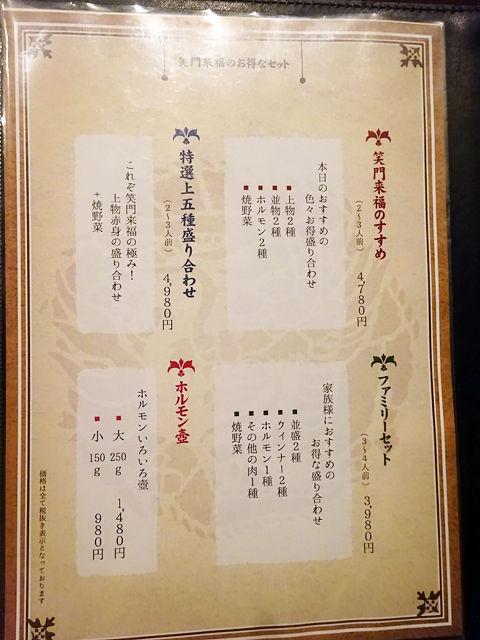 笑門来福のお得なセット
笑門来福のすすめ
(2~3人前)
4,780円
本日のおすすめの
色々お得盛り合わせ
■上物2種
■並物2種
■ホルモン2種
■焼野菜
特選上五種盛り合わせ
(2~3人前)
4,980円
これぞ笑門来福の極み!
上物赤身の盛り合わせ
+焼野菜
ファミリーセット
(3~4人前)
3,980円
家族様におすすめの
お得な盛り合わせ
■並盛2種
■ウインナー2種
■ホルモン1種
■その他の肉1種
■焼野菜
ホルモン壺
ホルモンいろいろ壺
■大 250g 1,480円
■小 150g 980円
価格は全て税抜き表示となっております